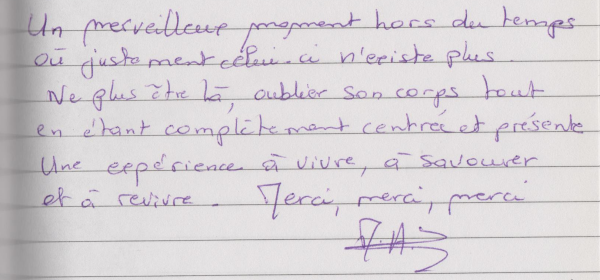 Un merveilleux moment hors du temps
où justement celui-ci n'existe plus.
Ne plus être là, oublier son corps tout
en étant complètement centrée et présente
Une expérience à vivre, à savourer
et à revivre. Merci, merci, merci